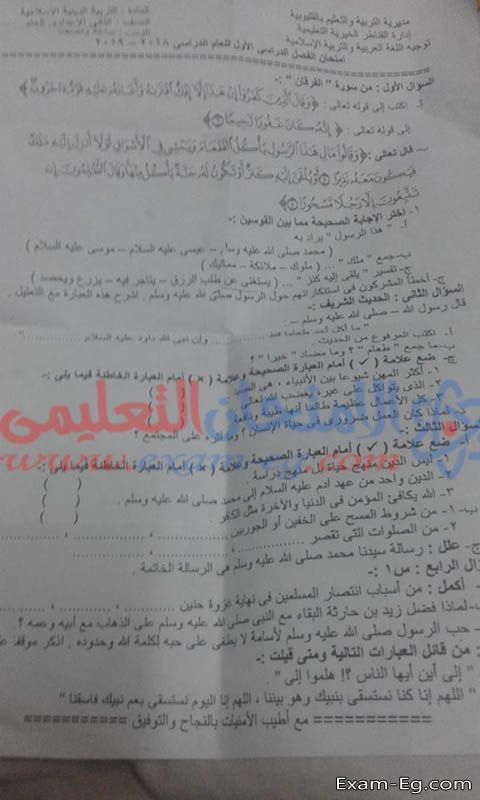 مديرية التربية والتعليم بالقليوبية
إدارة القناطر الخيرية التعليمية
توجيه اللغة العربية والتربية الإسلامية
المادة : التربية الدينية الإسلامية
الصف : الثاني الإعدادي العام
الزمن : ساعة ونصف
امتحان الفصل الدراسى الأول للعام الدراسى ٢٠١٨ – ٢٠١٩
السؤال الأول : من سورة " الفرقان " :-
أ- اكتب إلى قوله تعالى : ﴿ وَقَالَ الَّذِينَ كَفَرُوا إِنْ هَذَا إِلَّا إِفْكٌ افْتَرَاهُ وَأَعَانَهُ عَلَيْهِ قَوْمٌ آخَرُونَ
إلى قوله تعالى : ﴿ إِنَّهُ كَانَ غَفُورًا رَحِيمًا ﴾
ب- قال تعالى : ﴿ وَقَالُوا مَالِ هَذَا الرَّسُولِ يَأْكُلُ الطَّعَامَ وَيَمْشِي فِي الْأَسْوَاقِ لَوْلَا أُنْزِلَ إِلَيْهِ مَلَكٌ
فَيَكُونَ مَعَهُ نَذِيرًا أَوْ يُلْقَى إِلَيْهِ كَنْزٌ أَوْ تَكُونُ لَهُ جَنَّةٌ يَأْكُلُ مِنْهَا وَقَالَ الظَّالِمُونَ إِنْ
تَتَّبِعُونَ إِلَّا رَجُلًا مَسْحُورًا ﴾
١- اختر الإجابة الصحيحة مما بين القوسين :-
أ- " هذا الرسول " يراد به
( محمد صلى الله عليه وسلم – عيسى عليه السلام – موسى عليه السلام )
ب- جمع " ملك " ... ( ملوك – ملائكة – مماليك )
ج- تفسير " يلقى إليه كنز " ... ( يستغنى عن طلب الرزق – يتاجر فيه – يزرع ويحصد )
ج- أخطأ المشركون فى استنكاراتهم حول الرسول صلى الله عليه وسلم . اشرح هذه العبارة مع التعليل .
السؤال الثانى : الحديث الشريف :-
قال رسول الله – صلى الله عليه وسلم – :
" ما أكل أحد طعاما قط ............ وإن نبى الله داود عليه السلام ............ "
أ- اكتب المرفوع من الحديث .
ب- ما جمع " طعام " ؟ وما مضاد " خيرا " ؟
ج- ضع علامة ( ✓ ) أمام العبارة الصحيحة وعلامة ( × ) أمام العبارة الخاطئة فيما يلى :-
١- أكثر المهن شيوعا بين الأنبياء ، هى الصيد ( )
٢- الذى يتواكل على غيره يغضب الله تعالى ( )
٣- كل الأعمال عظيمة طالما أنها طيبة ونافعة ( )
د- لماذا كان العمل ضرورى فى حياة الإنسان ؟ وما أثره على المجتمع ؟
السؤال الثالث :
أ- ضع علامة ( ✓ ) أمام العبارة الصحيحة وعلامة ( × ) أمام العبارة الخاطئة فيما يلى :-
١- ليس الدين منهج حياة بل منهج دراسة . ( )
٢- الدين واحد من عهد آدم عليه السلام إلى محمد صلى الله عليه وسلم . ( )
٣- الله يكافئ المؤمن فى الدنيا والآخرة مثل الكافر . ( )
ب- ١- من شروط المسح على الخفين أو الجوربين ............ ، ............
٢- من الصلوات التى تقصر ............ ، ............
ج- علل : رسالة سيدنا محمد صلى الله عليه وسلم هى الرسالة الخاتمة .
ال الرابع : س١ :-
- أكمل : من أسباب انتصار المسلمين فى نهاية غزوة حنين ............ ، ............
ب- لماذا فضل زيد بن حارثة البقاء مع النبى صلى الله عليه وسلم على الذهاب مع أبيه وعمه ؟
- حب الرسول صلى الله عليه وسلم لأسامة لا يطغى على حبه لكلمة الله وحدوده . اذكر موقفا
: من قائل العبارات التالية ومتى قيلت :-
" إلى أين أيها الناس ؟! هلموا إلى "
" اللهم إنا كنا نستسقى بنبيك وهو بيننا ، اللهم إنا اليوم نستسقى بعم نبيك فاسقنا "
========== مع أطيب الأمنيات بالنجاح والتوفيق ==========
الامتحان التعليمى
www.exam-eg.com
Exam-Eg.com